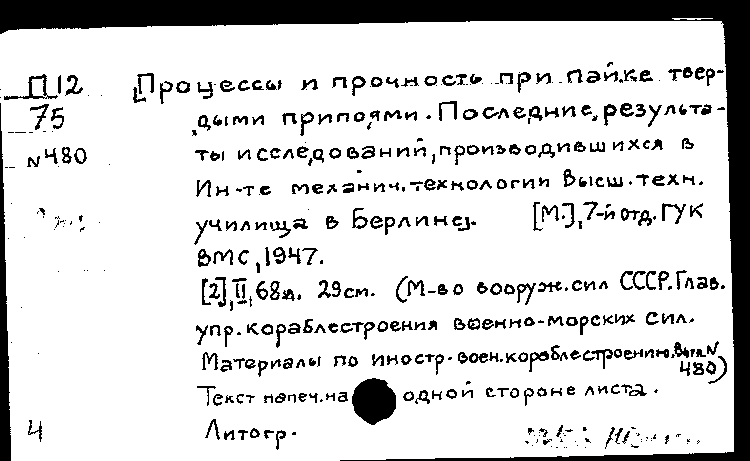 П12 [Процессы и прочность при пайке твер-
75 дыми припоями. Последние, результа-
N480 ты исследований, производившихся в
Ин-те механич. технологии Высш. техн.
училища в Берлине]. [М.], 7-й отд. ГУК
ВМС, 1947.
[2], II, 68л. 29см. (М-во вооруж. сил СССР. Глав.
упр. кораблестроения военно-морских сил.
Материалы по иностр. воен. кораблестроению. Вып. N
480)
Текст напеч. на одной стороне листа.
4 Литогр.